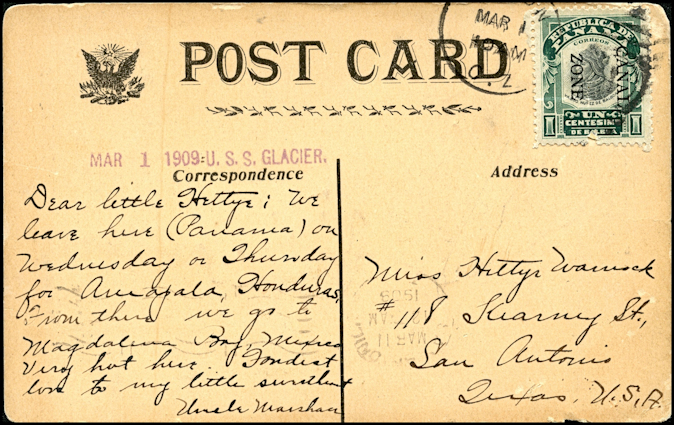 POST CARD
MAR 1
C. Z.
REPUBLICA DE
PANAMA
CORREOS
CANAL
ZONE
1 UN 1
CENTESIMO
DE BALBOA
MAR 1 1909 U. S. S. GLACIER.
Correspondence
Dear little Hettye; We
leave here (Panama) on
Wednesday or Thursday
for Amapala, Honduras,
From there we go to
Magdalena Bay, Mexico
Very hot here. Fondest
love to my little sweetheart
Uncle Marshall
Address
Miss Hettye Warnock
#118 Kearney St.,
San Antonio
Texas, U.S.A.
MAR 11
1909
AM